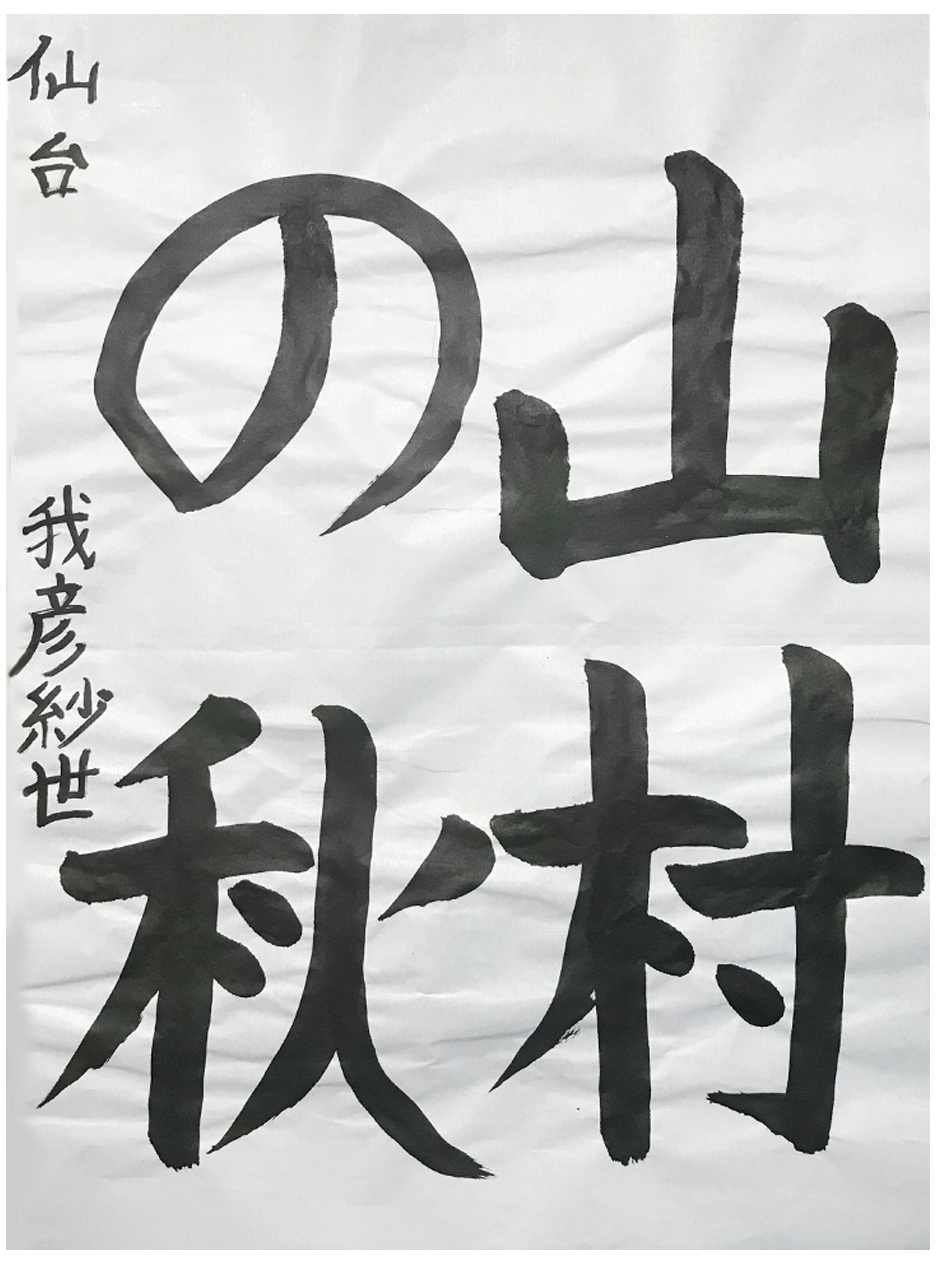 山村
の秋
仙台 我彦紗世